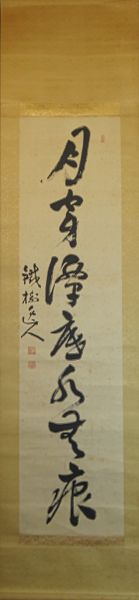 月穿潭底水無痕
鐵樹道人